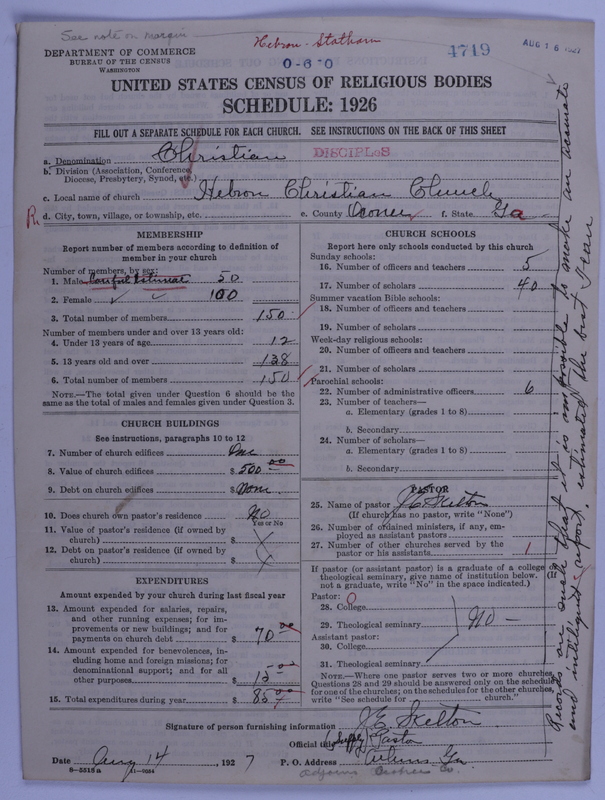 See note on margin
Hebron - Statham
4719
AUG 16 1927
DEPARTMENT OF COMMERCE
BUREAU OF THE CENSUS
WASHINGTON
0-6-0
UNITED STATES CENSUS OF RELIGIOUS BODIES
SCHEDULE: 1926
FILL OUT A SEPARATE SCHEDULE FOR EACH CHURCH. SEE INSTRUCTIONS ON THE BACK OF THIS SHEET
a. Denomination Christian DISCIPLES
b. Division (Association, Conference, Diocese, Presbytery, Synod, etc.)
c. Local name of church Hebron Christian Church
R. d. City, town, village, or township, etc. e. County Oconee f. State Ga
MEMBERSHIP
Report number of members according to definition of member in your church
Number of members, by sex:
1. Male Careful Estimate 50
2. Female 100
3. Total number of members 150
Number of members under and over 13 years old:
4. Under 13 years of age 12
5. 13 years old and over 138
6. Total number of members 150
NOTE.—The total given under Question 6 should be the same as the total of males and females given under Question 3.
CHURCH BUILDINGS
See instructions, paragraphs 10 to 12
7. Number of church edifices One
8. Value of church edifices $ 500 00
9. Debt on church edifices $ None
10. Does church own pastor's residence? No
Yes or No
11. Value of pastor's residence (if owned by church) $
12. Debt on pastor's residence (if owned by church) $
EXPENDITURES
Amount expended by your church during last fiscal year
13. Amount expended for salaries, repairs, and other running expenses; for improvements or new buildings; and for payments on church debt $ 70 00
14. Amount expended for benevolences, including home and foreign missions; for denominational support; and for all other purposes $ 15 00
15. Total expenditures during year $ 85 00
CHURCH SCHOOLS
Report here only schools conducted by this church
Sunday schools:
16. Number of officers and teachers 5
17. Number of scholars 40
Summer vacation Bible schools:
18. Number of officers and teachers
19. Number of scholars
Week-day religious schools:
20. Number of officers and teachers
21. Number of scholars
Parochial schools:
22. Number of administrative officers 6
23. Number of teachers—
a. Elementary (grades 1 to 8)
b. Secondary
24. Number of scholars—
a. Elementary (grades 1 to 8)
b. Secondary
PASTOR
25. Name of pastor J E Skelton
(If church has no pastor, write "None")
26. Number of ordained ministers, if any, employed as assistant pastors
27. Number of other churches served by the pastor or his assistants 1
If pastor (or assistant pastor) is a graduate of a college or theological seminary, give name of institution below. (If not a graduate, write "No" in the space indicated.)
Pastor: 0
28. College
29. Theological seminary No -
Assistant pastor:
30. College
31. Theological seminary
NOTE.—Where one pastor serves two or more churches, Questions 28 and 29 should be answered only on the schedule for one of the churches; on the schedules for the other churches, write "See schedule for church."
Signature of person furnishing information J. E. Skelton
Official title (Supply) Pastor
Date Aug 14 1927 P. O. Address Athens Ga.
8-5518a 11-9034
Records are such that it is impossible to make an accurate
and intelligent report, estimated the best I can